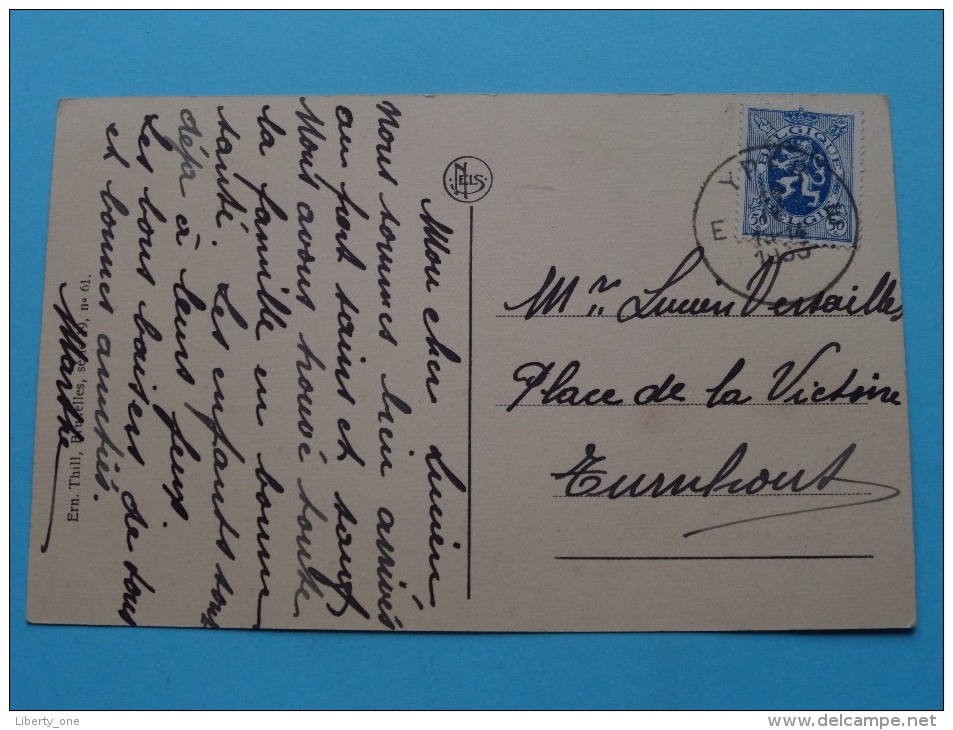 Mon cher Lucien
Nous sommes bien arrivés
au port sains et sauf
Nous avons trouvé toute
la famille en bonne
santé. Les enfants sont
déja à leurs jeux
Les bons baisers de tous
et bonnes amitiés.
Marthe
Ern. Thill, Bruxelles, série 19, nº 61.
NELS
BELGIQUE
BELGIE
50 50
Y
E
Mr. Lucien Versailles
Place de la Victoire
Turnhout
Liberty_one
www.delcampe.net